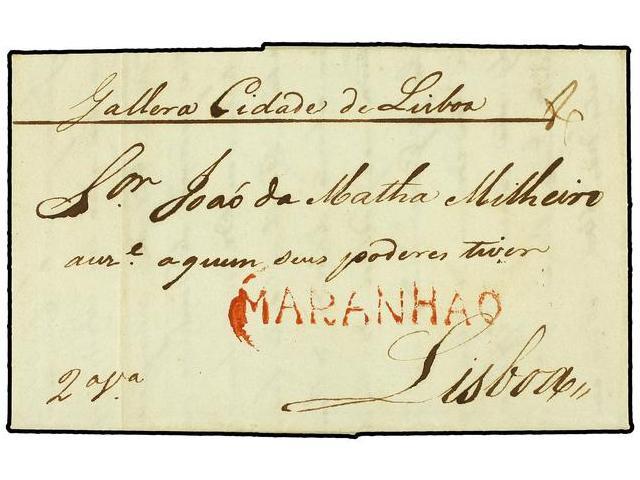 Gallera Cidade de Lisboa
Sor. João da Matha Milheiro
aur.e aquem seus poderes tiver
MARANHAO
2a via Lisboa